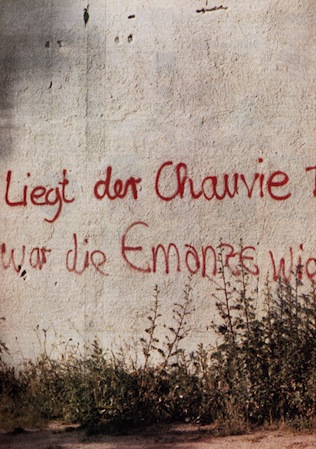 Liegt der Chauvie
war die Emanze wie